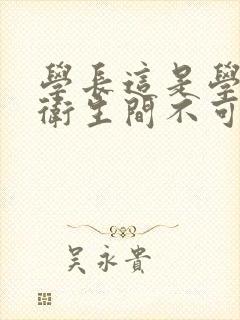 學長這是學
衛生間不可
吳永貴